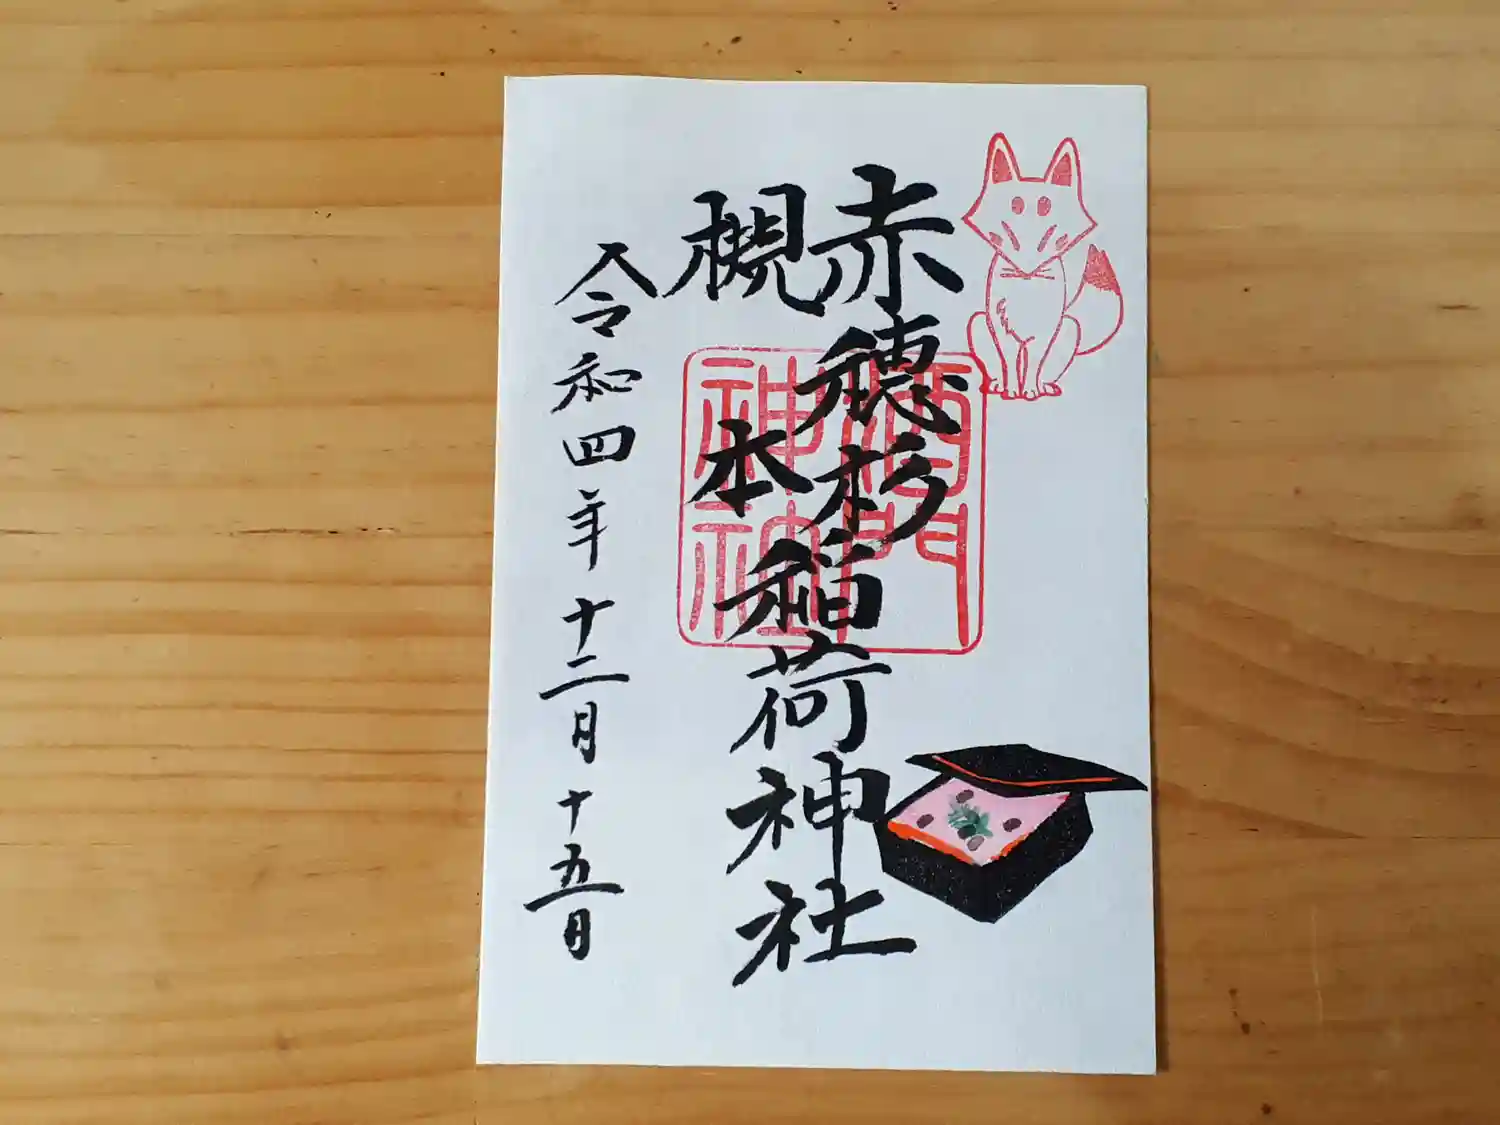 赤穂杉
槻本
稲荷神社
令和四年十二月十五日